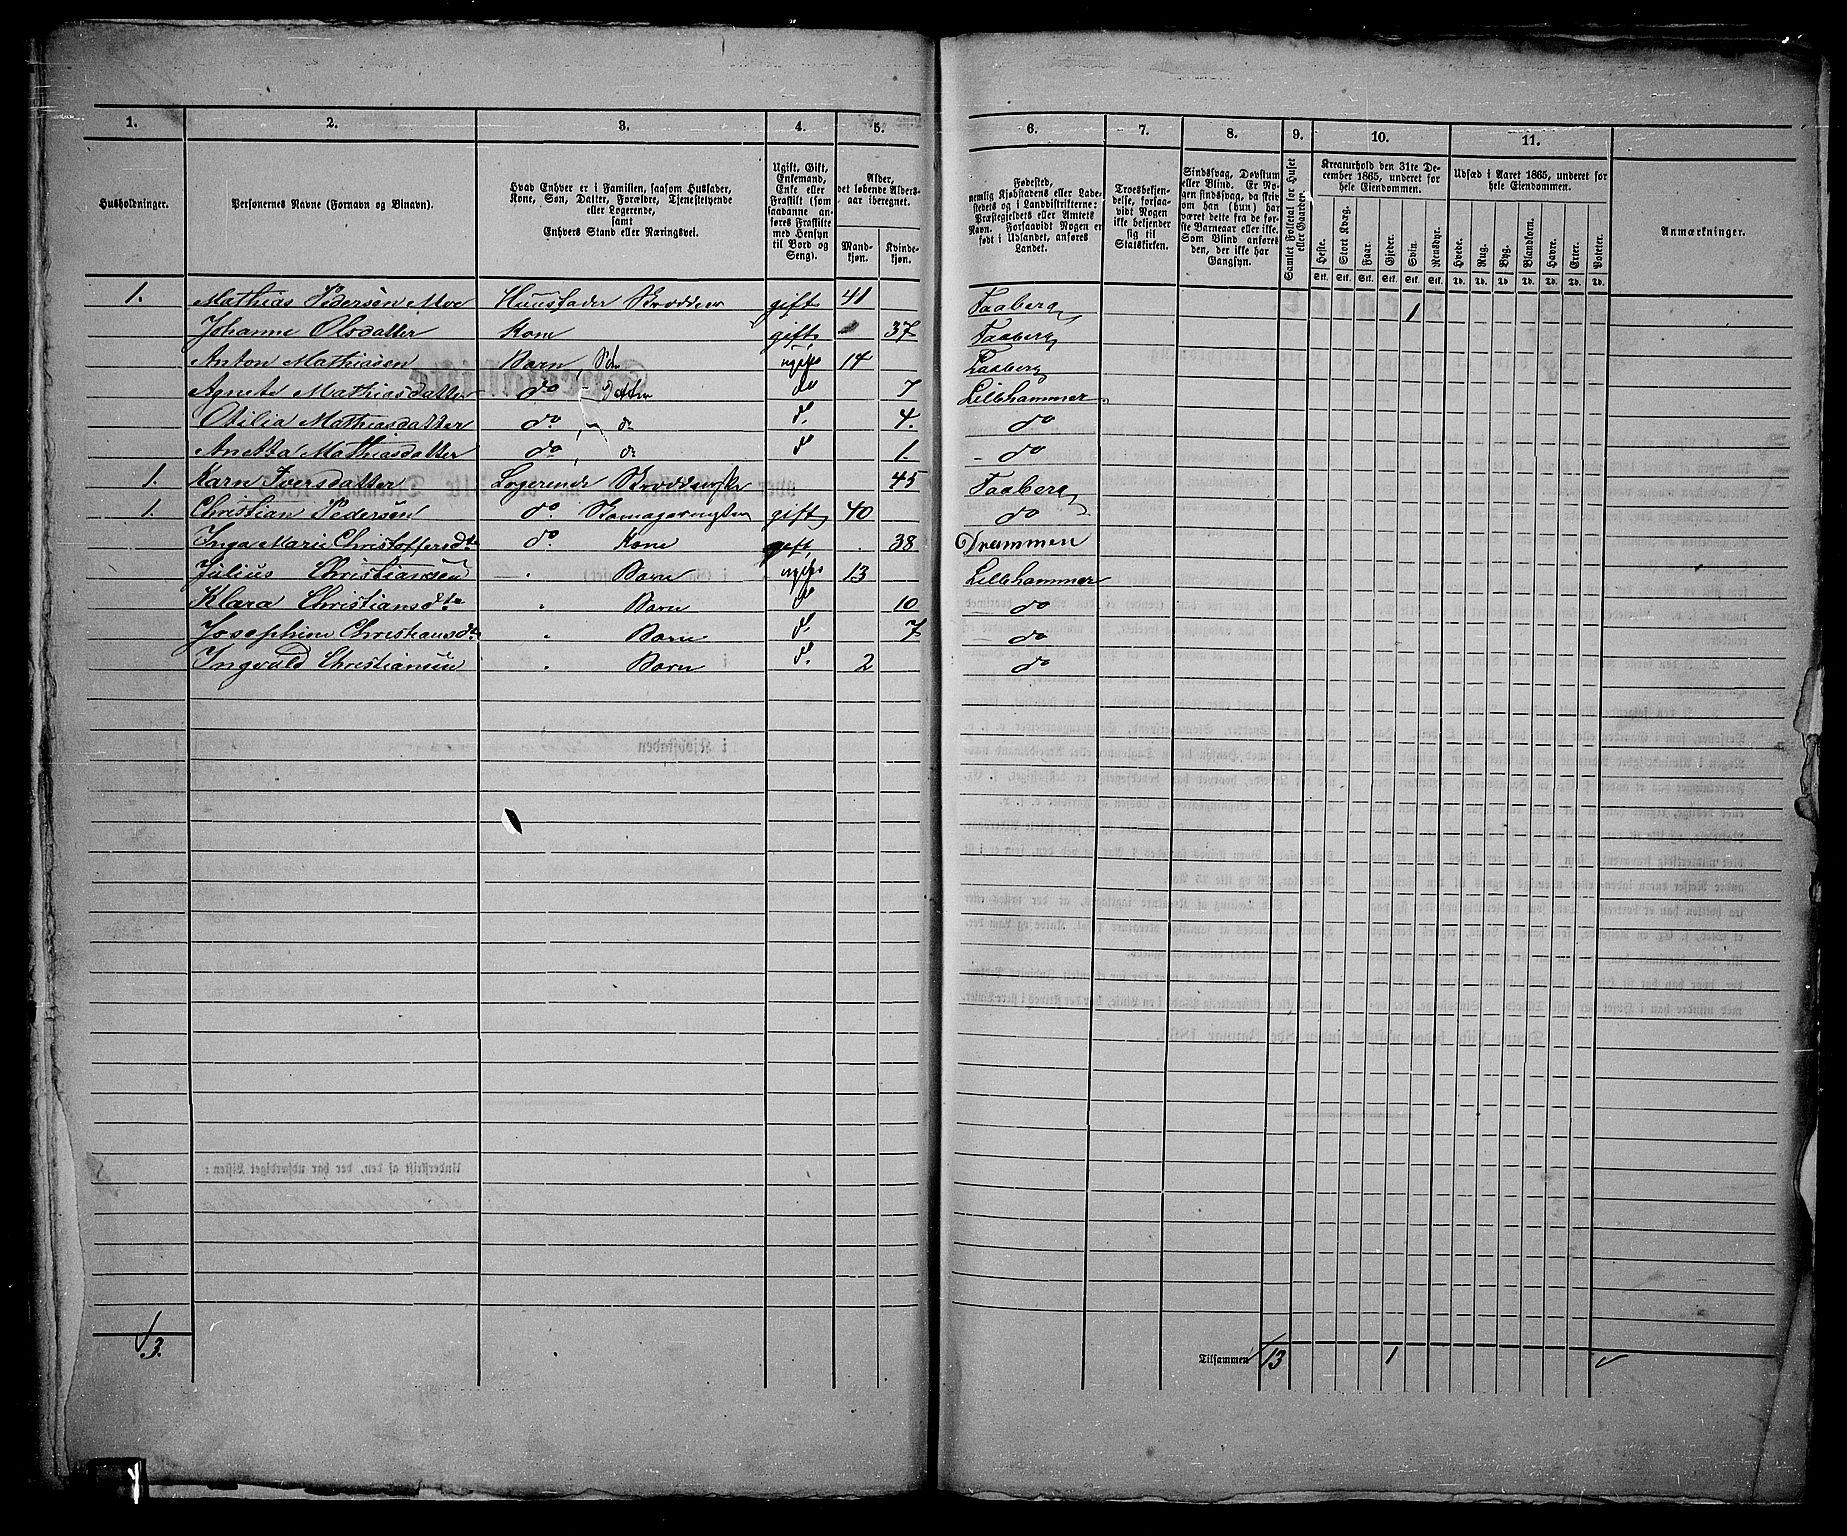 1.
2.
3.
4.
5.
6.
7.
8.
9.
10.
11.
Husholdninger.
Personernes Navne (Fornavn og Binavn).
Hvad Enhver er i Familien, saasom Husfader,
Kone, Søn, Datter, Forældre, Tjenestetyende
eller Logerende,
samt
Enhvers Stand eller Næringsvei.
Ugift, Gift,
Enkemand,
Enke eller
Fraskilt (som
saadanne an-
føres Fraskilte
med Hensyn
til Bord og
Seng).
Alder,
det løbende Alders-
aar iberegnet.
Mand-
kjøn.
Kvinde-
kjøn.
Fødested,
nemlig Kjøbstadens eller Lade-
stedets og i Landdistrikterne:
Præstegjeldets eller Amtets
Navn. Forsaavidt Nogen er
født i Udlandet, anføres
Landet.
Troesbekjen-
delse, forsaa-
vidt Nogen
ikke bekjender
sig til
Statskirken.
Sindssvag, Døvstum
eller Blind. Er No-
gen sindssvag, da skriv
om han (hun) har
været dette fra de før-
ste Barneaar eller ikke.
Som Blind anføres
den, der ikke har
Gangsyn.
Samlet Folketal for Huset
eller Gaarden.
Kreaturhold den 31te De-
cember 1865, underet for
hele Eiendommen.
Heste. Stort Kvæg. Faar. Gjeder. Svin. Rensdyr.
Stk. Stk. Stk. Stk. Stk. Stk.
Udsæd i Aaret 1865, underet for
hele Eiendommen.
Hvede. Rug. Byg. Blandkorn. Havre. Erter. Poteter.
Td. Td. Td. Td. Td. Td. Td.
Anmærkninger.
1. Mathias Pedersen Moe Huusfader gift 41 Faaberg 1
Johanne Olsdatter Kone gift 37 Faaberg
Anton Mathiasen Barn, Søn ugift 14 Faaberg
Agnete Mathiasdatter do Datter do 7 Lillehammer
Otilia Mathiasdatter do do do 4. do
Anetta Mathiasdatter do, do do 1 do
1. Karn Iversdatter Logerende 45 Faaberg
1. Christian Pedersen do. gift 40 do
Inga Marie Christoffersdtr do. Kone gift 38 Drammen
Julius Christiansen " Barn ugift 13 Lillehammer
Klara Christiansdtr " Barn do 10 do
Josephine Christiansdtr " Barn do 7 do
Ingvald Christiansen " Barn do 2 do
3.
Tilsammen 13 1